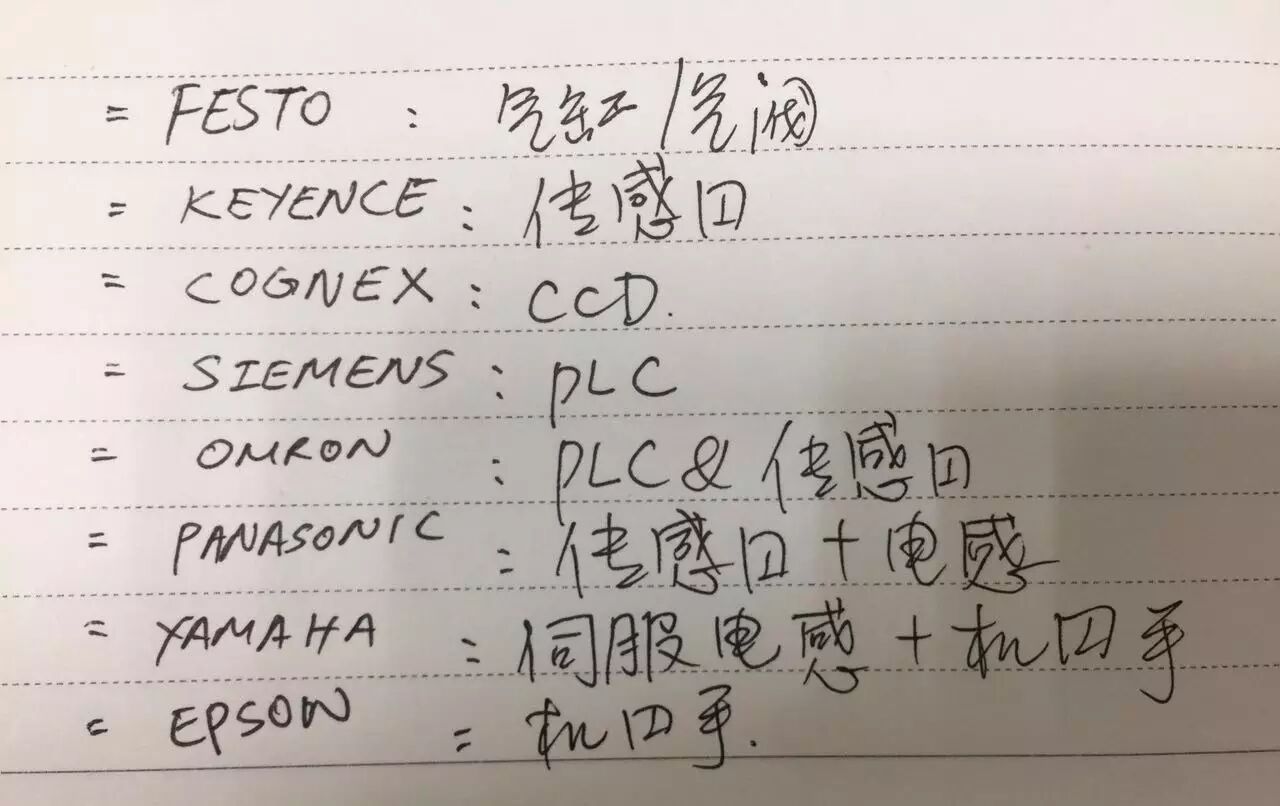 = FESTO : 气缸/气阀
= KEYENCE : 传感四
= COGNEX : CCD.
= SIEMENS : PLC
= OMRON : PLC & 传感四
= PANASONIC : 传感四 + 电感
= YAMAHA : 伺服电感 + 机四手
= EPSON = 机四手.